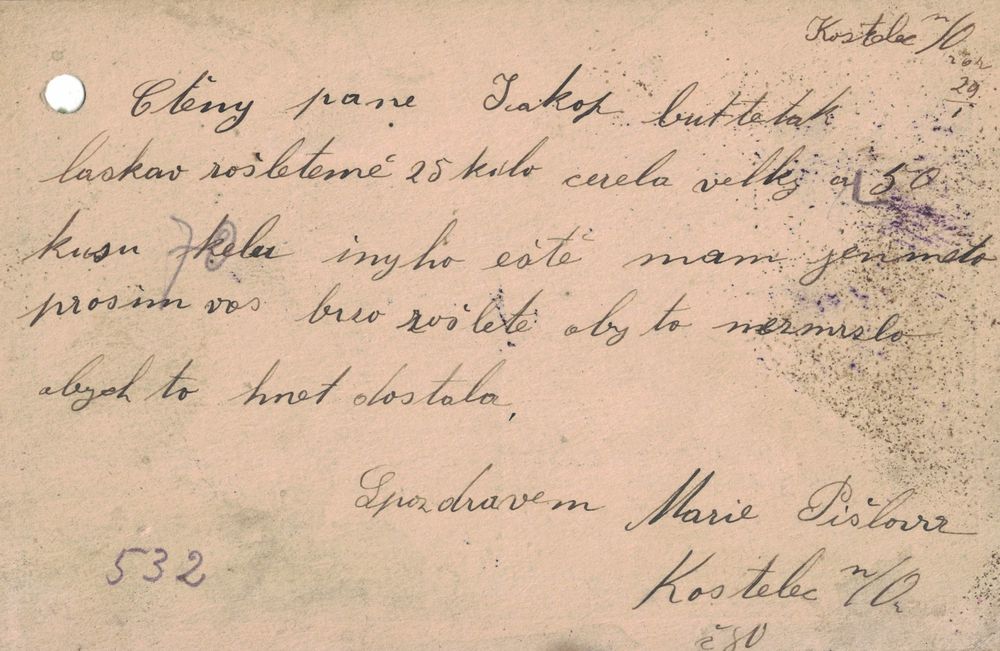 Kostelec n/O
29
1
Ctěny pane Jakop buttetak
laskav rošletemě 25 kilo cerela velky a 50
kusu kelu inyho eště mam jenmsto
78
prosim vos brzo rošlete aby to nezmrzlo
abych to hnet dostala,
Spozdravem Marie Pišlova
532
Kostelec n/O
č 80